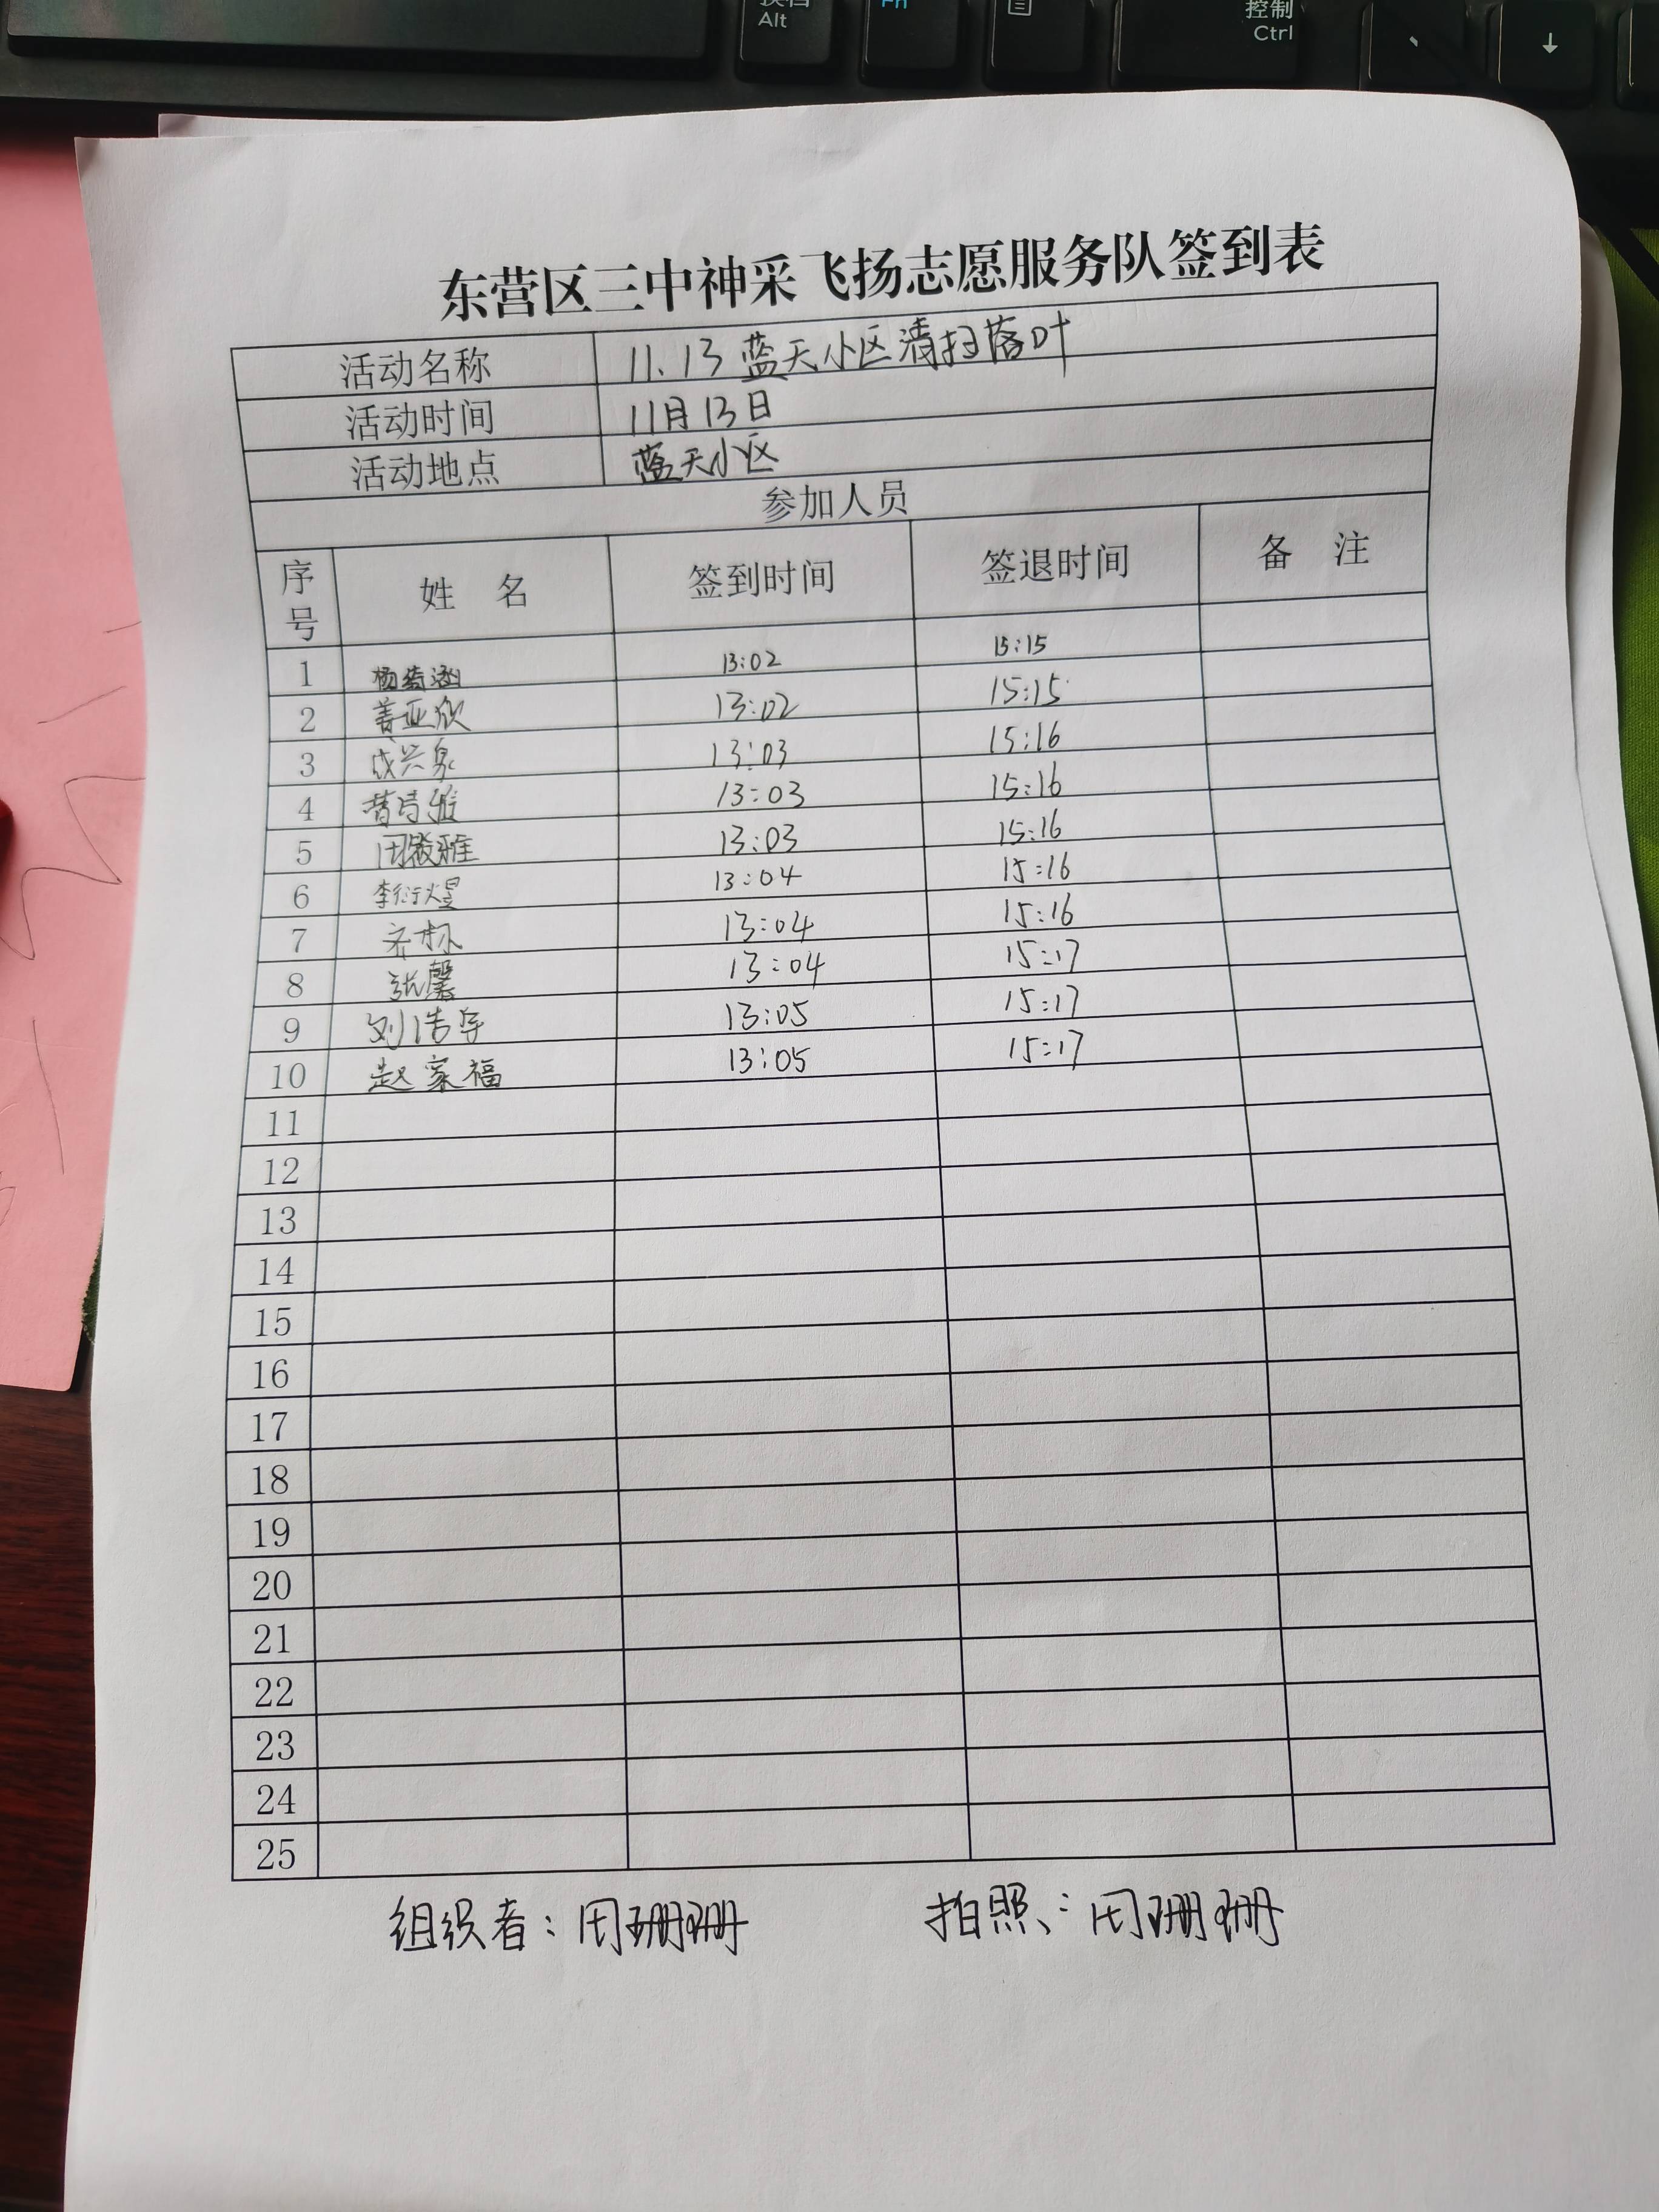 Alt
Fn
控制
Ctrl
↓
东营区三中神采飞扬志愿服务队签到表
活动名称 11.13 蓝天小区清扫落叶
活动时间 11月13日
活动地点 蓝天小区
参加人员
序号 姓 名 签到时间 签退时间 备 注
1 13:02 15:15
2 13:02 15:15
3 成兴泉 13:03 15:16
4 13:03 15:16
5 13:03 15:16
6 李衍煜 13:04 15:16
7 齐林 13:04 15:16
8 张馨 13:04 15:17
9 刘浩宇 13:05 15:17
10 赵家福 13:05 15:17
11
12
13
14
15
16
17
18
19
20
21
22
23
24
25
组织者：周珊珊 拍照：周珊珊